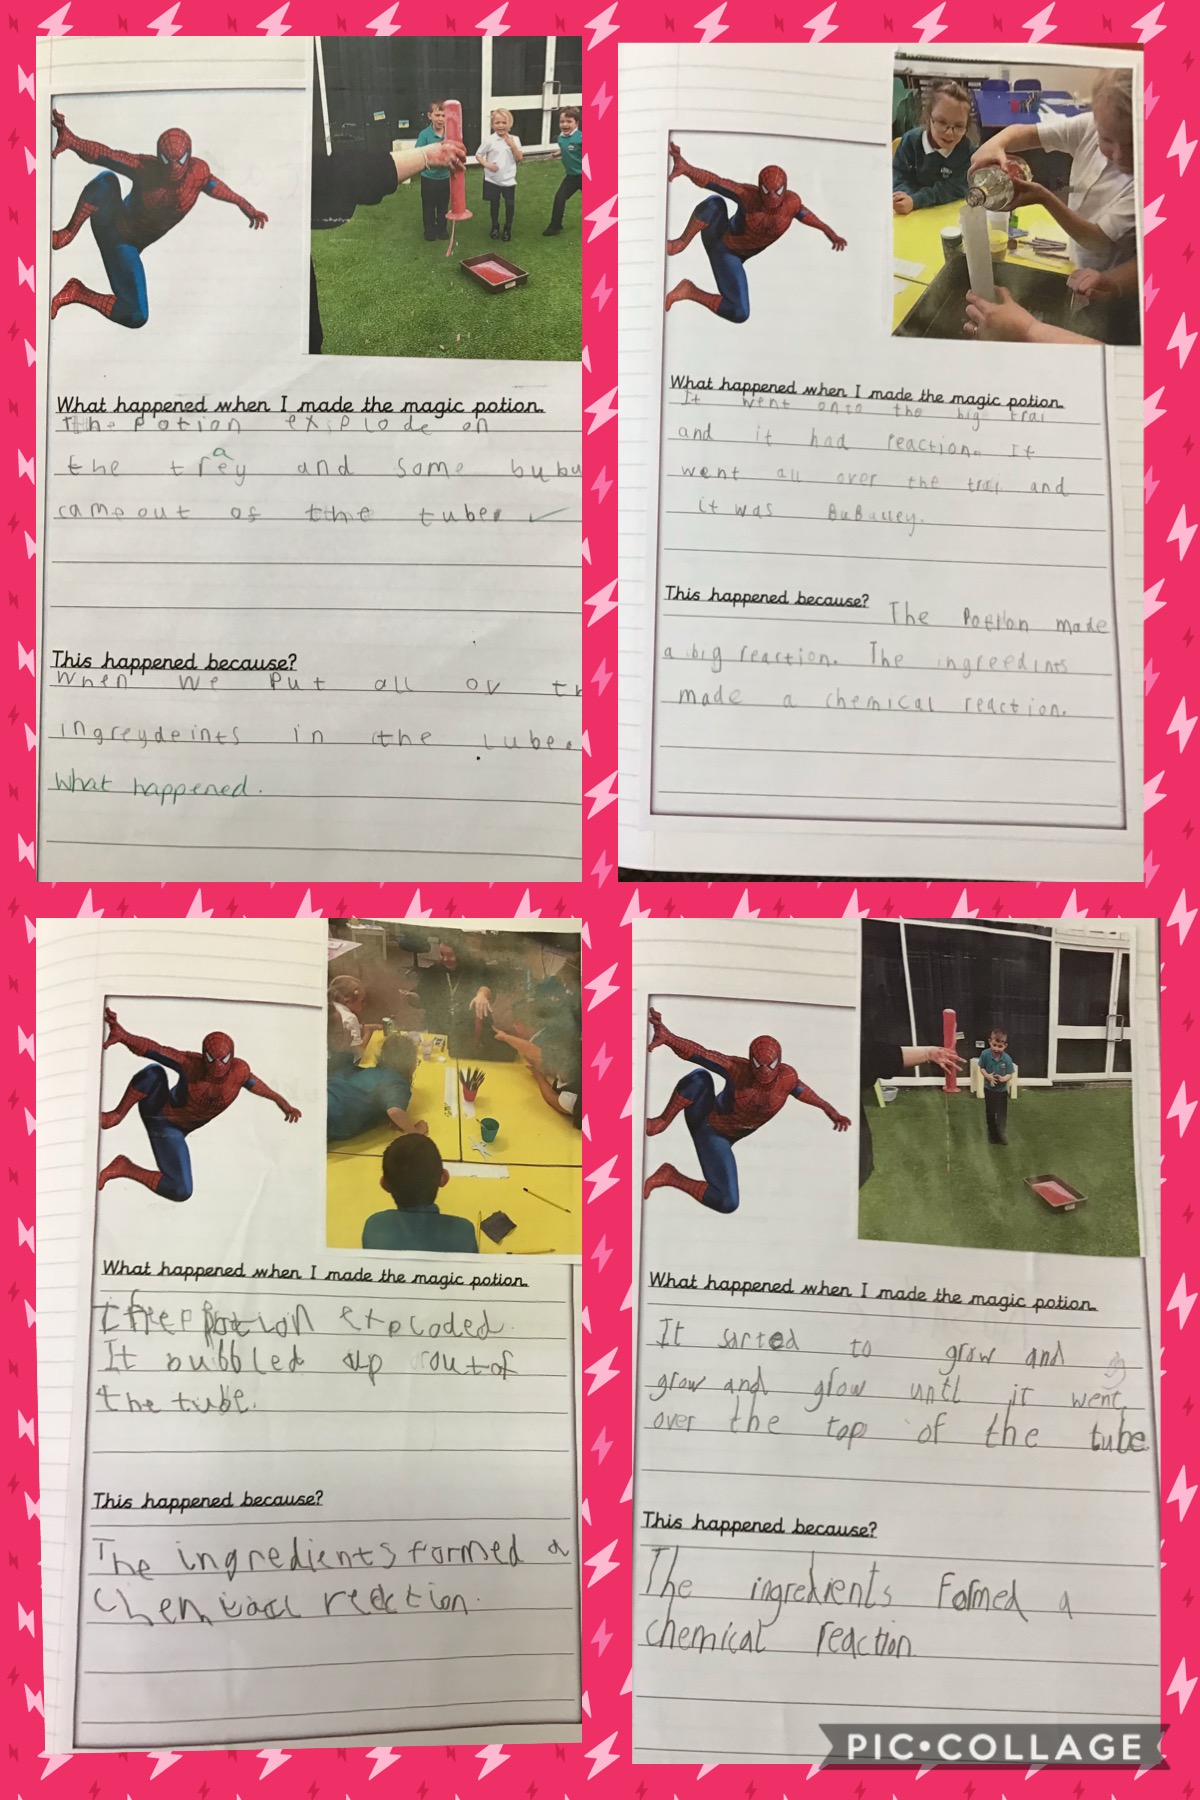 What happened when I made the magic potion.
The potion explode on
the trey and some bubu
a
came out of the tube.
This happened because?
When we put all ov th
ingreydeints in the tube.
What happened.
What happened when I made the magic potion.
It went onto the big trai
and it had reaction. It
went all over the trai and
it was
This happened because?
The Potion made
a big reaction. The ingreedints
made a chemical reaction.
What happened when I made the magic potion.
The potion exploded.
It bubbled up out of
the tube.
This happened because?
The ingredients formed a
chemical reaction.
What happened when I made the magic potion.
It sarted to grow and
grow and grow until it went
over the top of the tube
This happened because?
The ingredients formed a
chemical reaction.
PIC•COLLAGE